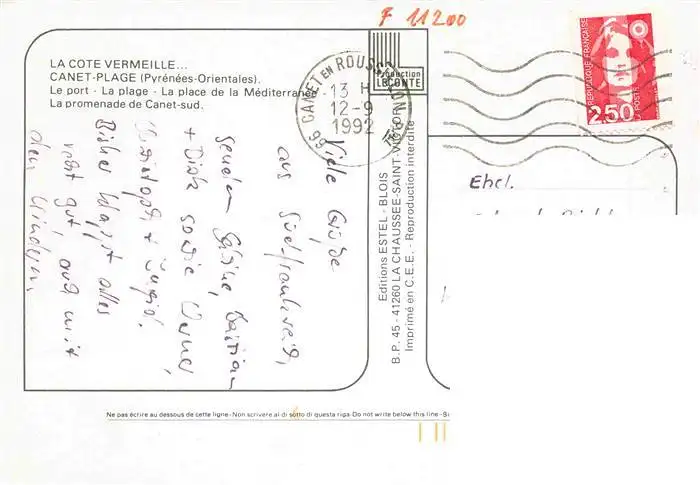 F 11200
LA COTE VERMEILLE...
CANET-PLAGE (Pyrénées-Orientales).
Le port - La plage - La place de la Méditerranée
La promenade de Canet-sud.
Production
LECONTE
66 CANET EN ROUSSILLON
13 H
12-9
1992
RÉPUBLIQUE FRANÇAISE
2,50
LA POSTE
Viele Grüße
aus Südfrankreich,
senden Sabine, Bastian
+ Dirk sowie Werner,
Christoph + Ingrid.
Bisher klappt alles
recht gut, auch mit
den Kindern.
Editions ESTEL - BLOIS
B.P. 45 - 41260 LA CHAUSSEE-SAINT-VICTOR
Imprimé en C.E.E. - Reproduction interdite
Ehel.
Ne pas écrire au dessous de cette ligne - Non scrivere al di sotto di questa riga - Do not write below this line -